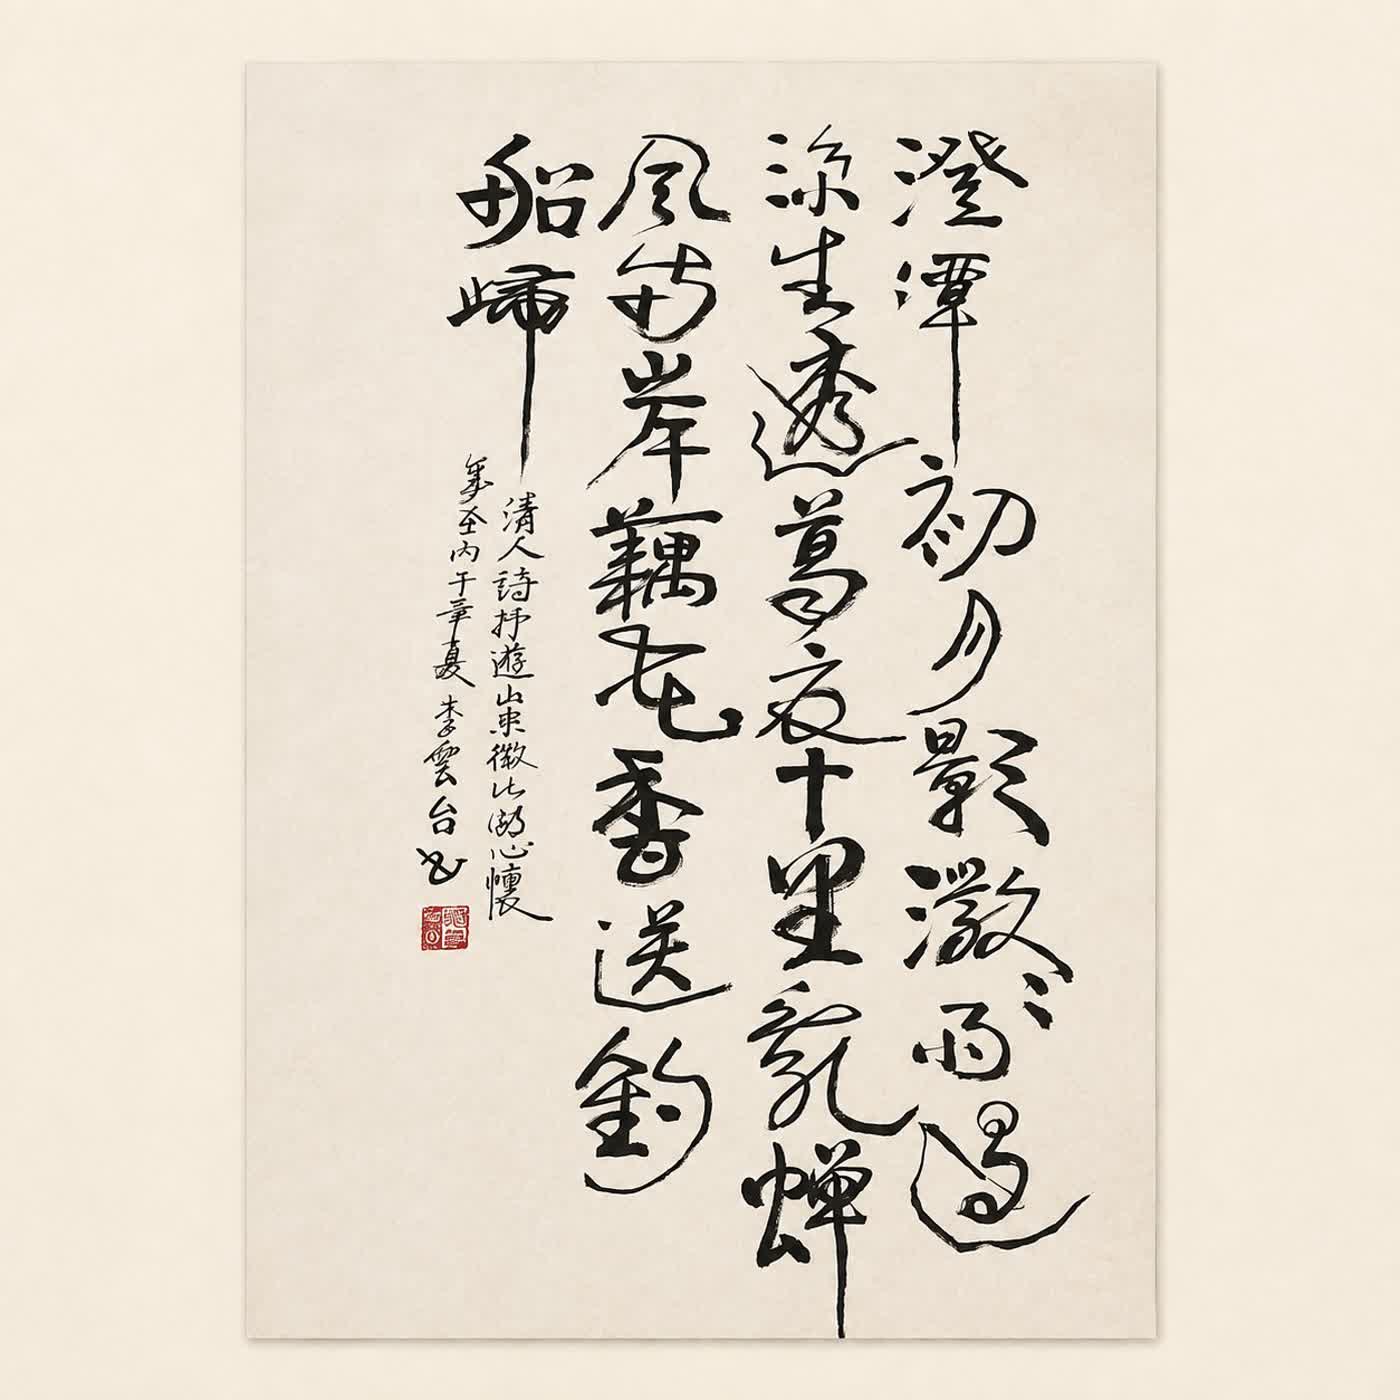 澄潭初月影激〻雨過
涼生透葛衣十里亂蟬
風兩岸藕花香送釣
船歸
清人詩抒遊山東微山湖心懷
歲在丙午年夏李雲台書